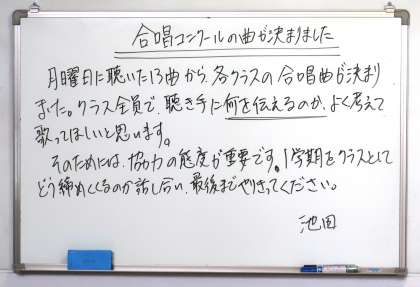 合唱コンクールの曲が決まりました
月曜日に聴いた13曲から、各クラスの合唱曲が決まり
ました。クラス全員で、聴き手に何を伝えるのか、よく考えて
歌ってほしいと思います。
そのためには、協力の態度が重要です。1学期をクラスとして
どう締めくくるのか話し合い、最後までやりきってください。
池田